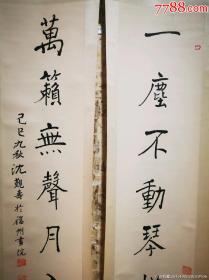 7788.com
一塵不動琴
萬籟無聲月
己巳九秋沈覲壽於福州畫院